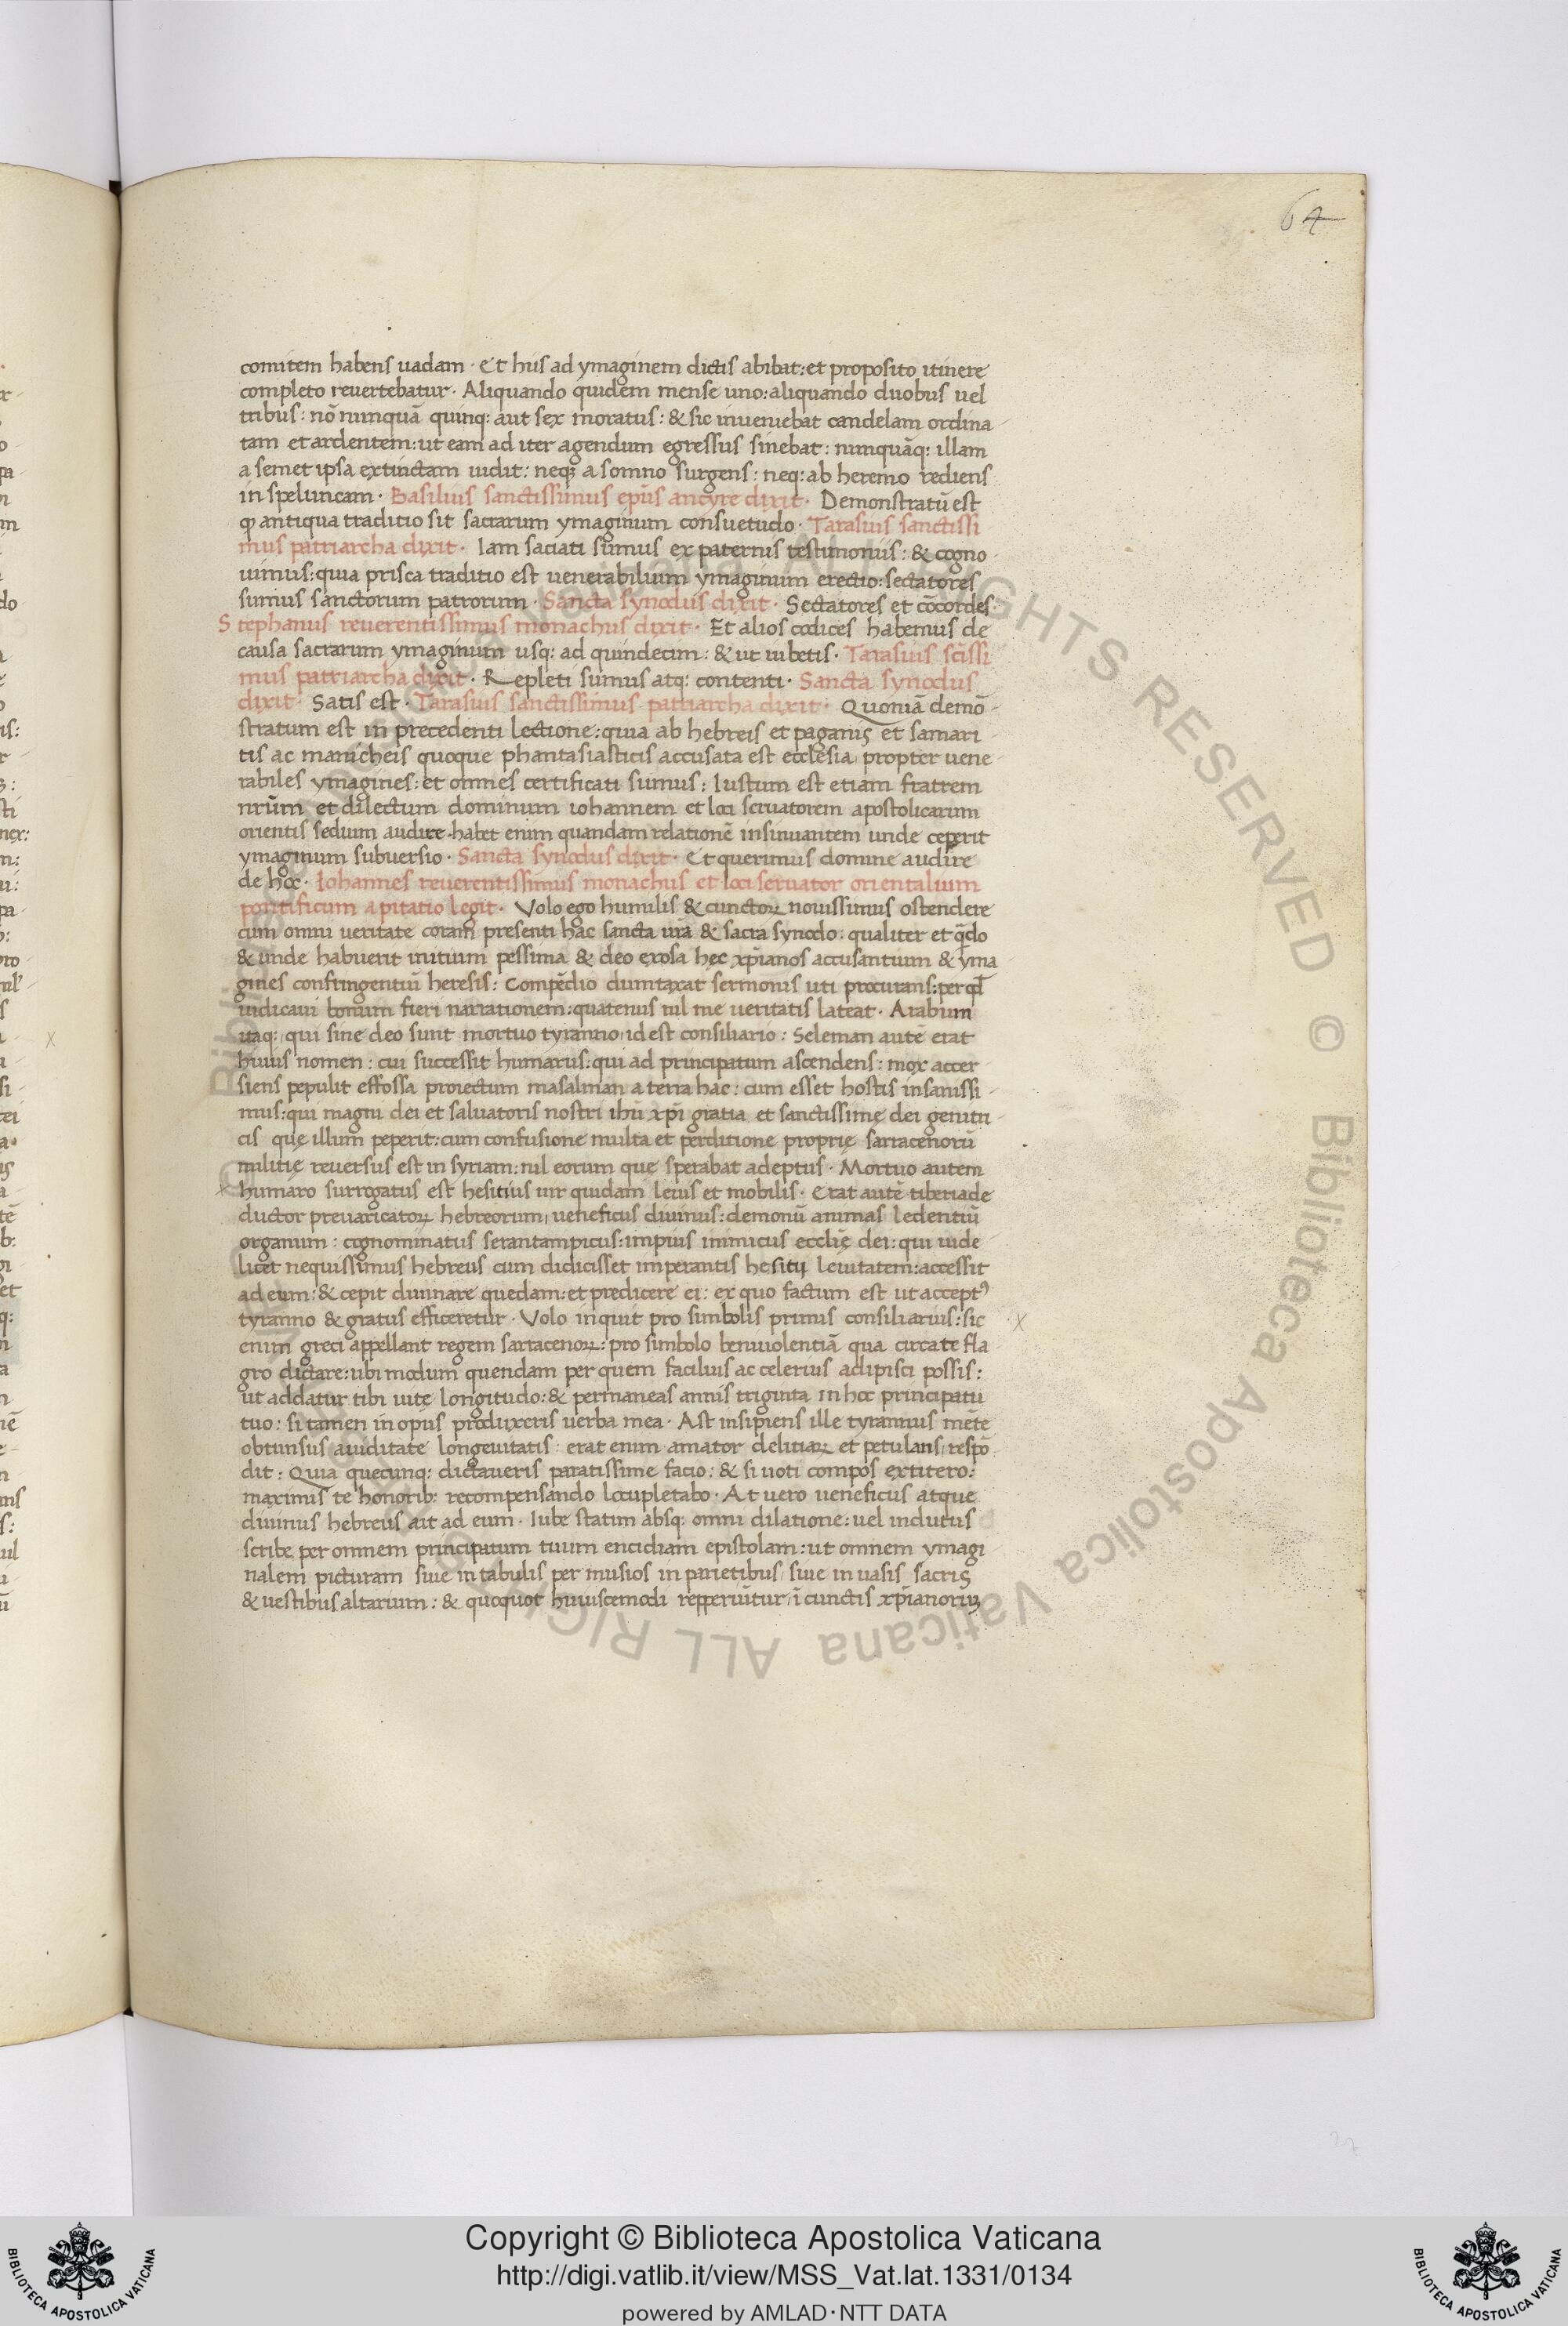 64
comitem habens uadam · Et hiis ad ymaginem dictis abibat: et proposito itinere
completo reuertebatur · Aliquando quidem mense uno: aliquando duobus uel
tribus: nō nunquā quinq: aut sex moratus: & sic inueniebat candelam ordina-
tam et ardentem: ut eam ad iter agendum egressus sinebat: nunquāq: illam
a semet ipsa extinctam uidit: neq; a somno surgens: neq: ab heremo rediens
in speluncam · Basilius sanctissimus ep̄us ancyre dixit · Demonstratū est
ꝙ antiqua traditio sit sacrarum ymaginum consuetudo · Tarasius sanctissi
mus patriarcha dixit · Iam saciati sumus ex paternis testimoniis: & cogno-
uimus: quia prisca traditio est uenerabilium ymaginum erectio: sectatores
sumus sanctorum patrorum · Sancta synodus dixit · Sectatores et cōcordes·
Stephanus reuerentissimus monachus dixit · Et alios codices habemus de
causa sacrarum ymaginum usq: ad quindecim: & ut iubetis · Tarasius sc̄issi
mus patriarcha dixit · Repleti sumus atq: contenti · Sancta synodus
dixit · Satis est · Tarasius sanctissimus patriarcha dixit · Quoniā demō-
stratum est in precedenti lectione: quia ab hebreis et paganis et samari-
tis ac manicheis quoque phantasiasticis accusata est ecclesia propter uene-
rabiles ymagines: et omnes certificati sumus: Iustum est etiam fratrem
nr̄um et dilectum dominum iohannem et loci seruatorem apostolicarum
orientis sedium audire · habet enim quandam relationē insinuantem unde ceperit
ymaginum subuersio · Sancta synodus dixit · Et querimus domine audire
de hoc · Iohannes reuerentissimus monachus et loci seruator orientalium
pontificum a pitatio legit · Volo ego humilis & cunctoꝝ nouissimus ostendere
cum omni ueritate coram presenti hac sancta ur̄a & sacra synodo: qualiter et q̄do
& unde habuerit initium pessima & deo exosa hec xp̄ianos accusantium & yma
gines confringentiū heresis: Compēdio dumtaxat sermonis uti procurans: per qđ
iudicaui bonum fieri narrationem: quatenus nil me ueritatis lateat · Arabum
itaq: qui sine deo sunt mortuo tyranno id est consiliario: Seleman autē erat
huius nomen: cui successit humarus: qui ad principatum ascendens: mox accer
siens pepulit effossa proiectum masalman a terra hac: cum esset hostis insanissi-
mus: qui magni dei et saluatoris nostri ihū xp̄i gratia et sanctissime dei genitri
cis quę illum peperit: cum confusione multa et perditione proprię sarracenorū
militię reuersus est in syriam: nil eorum quę sperabat adeptus · Mortuo autem
humaro surrogatus est hesitius uir quidam leuis et mobilis · Erat autē tiberiade
ductor preuaricatoꝝ hebreorum, ueneficus diuinus: demonū animas ledentiū
organum: cognominatus serantampicus: impius inimicus ecclię dei: qui uide-
licet nequissimus hebreus cum didicisset imperantis hesitii leuitatem: accessit
ad eum: & cepit diuinare quedam: et predicere ei: ex quo factum est ut accept⁹
tyranno & gratus efficeretur · Volo inquit pro simbolis primis consiliarius: sic
enim greci appellant regem sarracenoꝝ: pro simbolo beniuolentiā qua circa te fla
gro dictare: ubi modum quendam per quem facilius ac celerius adipisci possis:
ut addatur tibi uitę longitudo: & permaneas annis triginta in hoc principatu
tuo: si tamen in opus produxeris uerba mea · Ast insipiens ille tyrannus mēte
obtunsus auiditate longeuitatis: erat enim amator delitiaꝝ et petulans, respō
dit: Quia quecunq: dictaueris paratissime facio: & si uoti compos extitero:
maximis te honorib: recompensando locupletabo · At uero ueneficus atque
diuinus hebreus ait ad eum · Iube statim absq: omni dilatione: uel indutiis
scribe per omnem principatum tuum encicliam epistolam: ut omnem ymagi-
nalem picturam siue in tabulis per musios in parietibus siue in uasis sacris
& uestibus altarium: & quoquot huiuscemodi repperiūtur, ī cunctis xp̄ianoruꝫ
Copyright © Biblioteca Apostolica Vaticana
http://digi.vatlib.it/view/MSS_Vat.lat.1331/0134
powered by AMLAD·NTT DATA
BIBLIOTECA APOSTOLICA VATICANA
BIBLIOTECA APOSTOLICA VATICANA